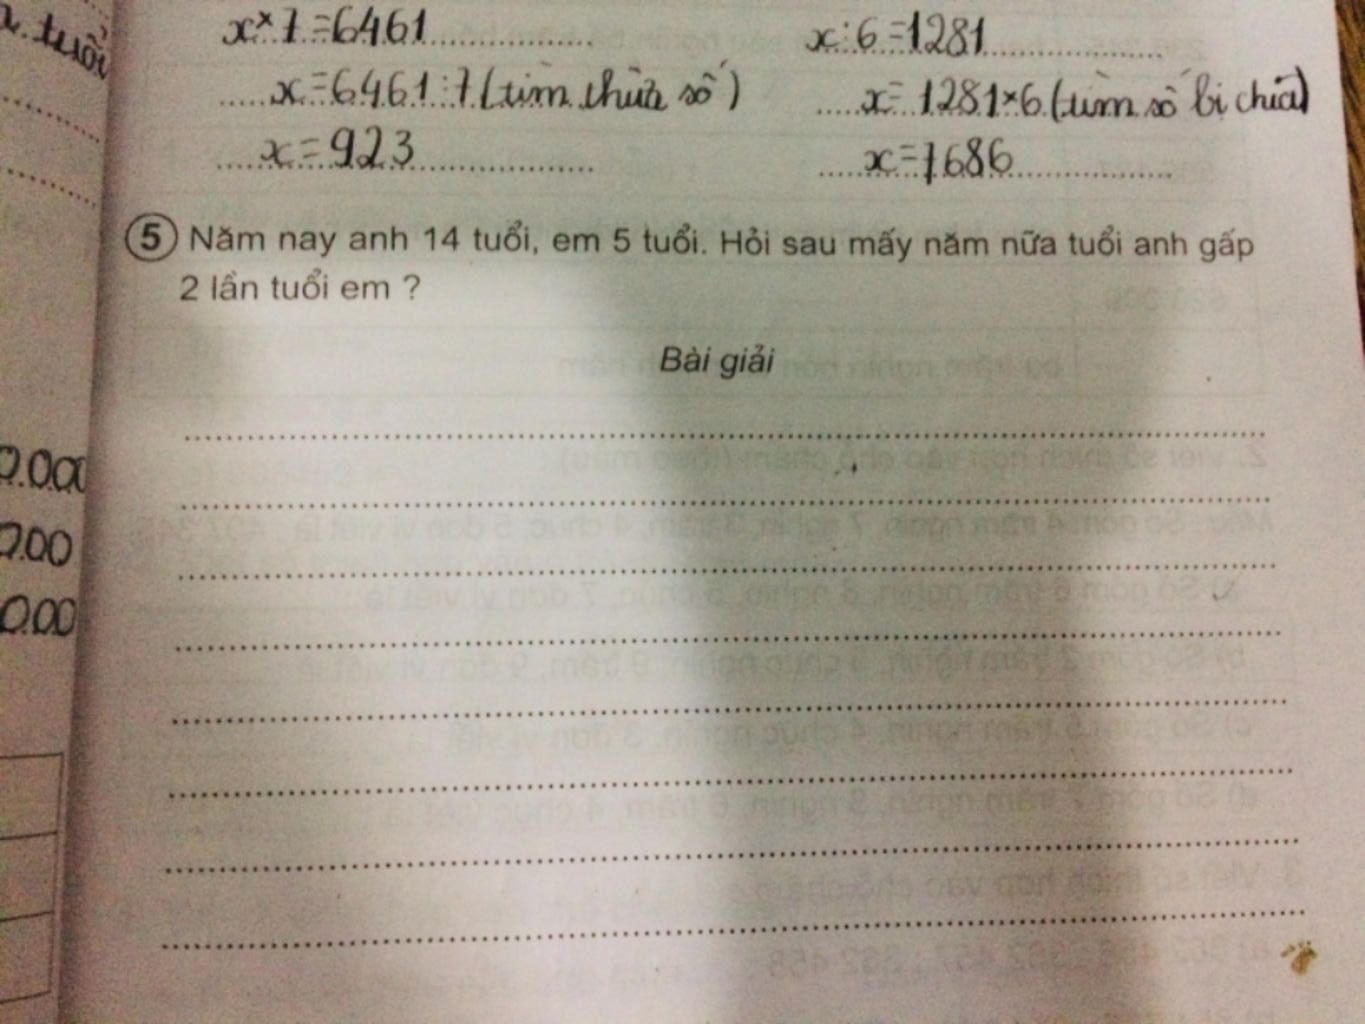 tuổi
x × 7 = 6461
x : 6 = 1281
x = 6461 : 7 (tìm thừa số)
x = 1281 × 6 (tìm số bị chia)
x = 923
x = 1686
5 Năm nay anh 14 tuổi, em 5 tuổi. Hỏi sau mấy năm nữa tuổi anh gấp
2 lần tuổi em ?
Bài giải